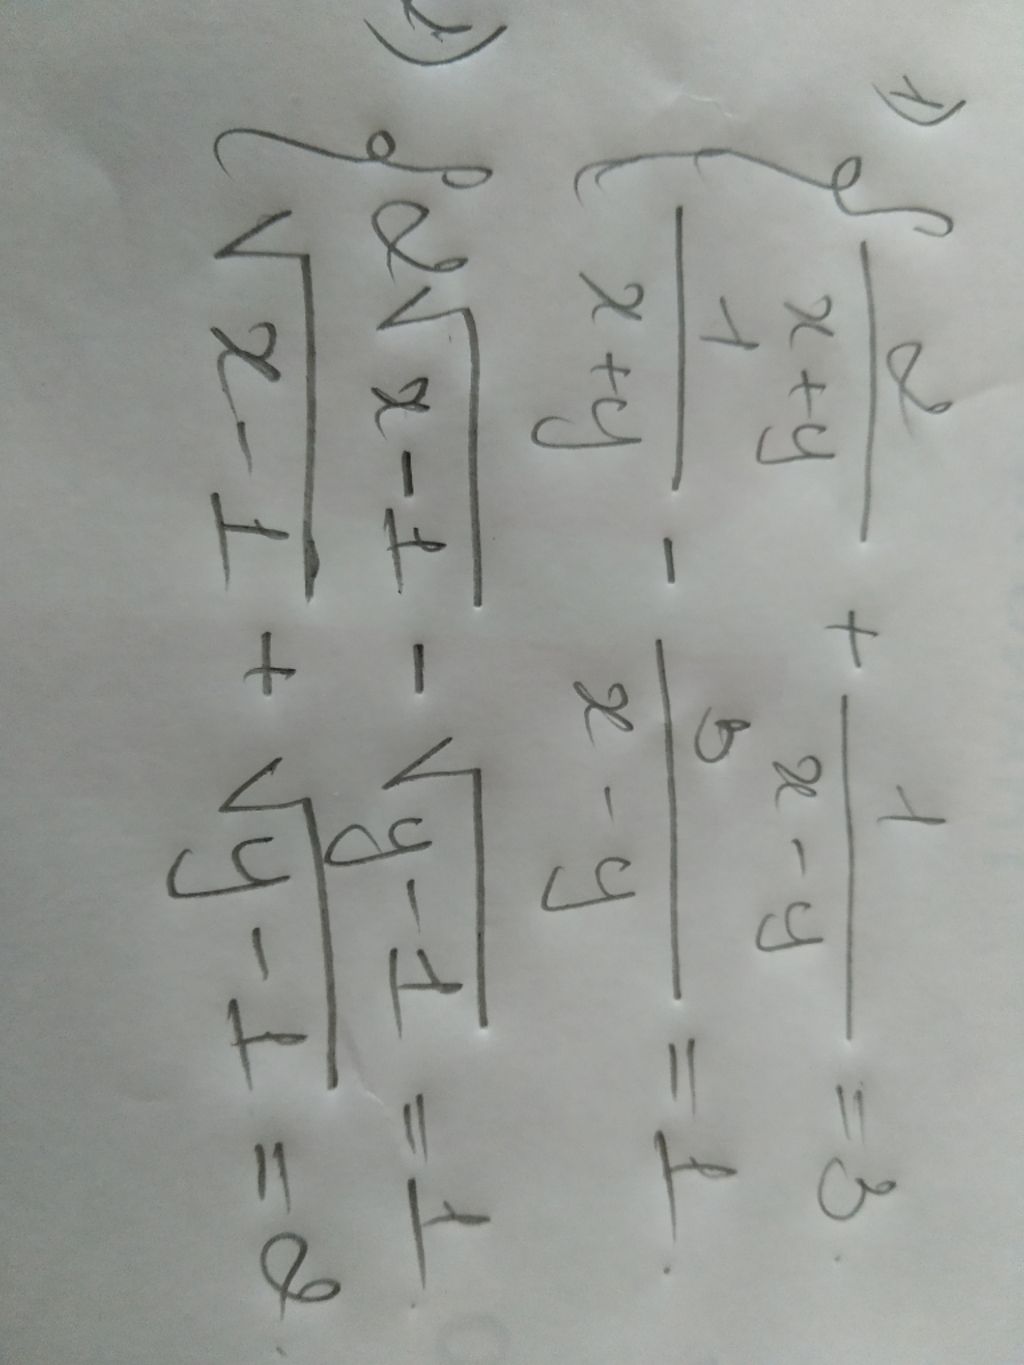 1) { 2/(x+y) + 1/(x-y) = 3
1/(x+y) - 3/(x-y) = 1
{ 2√(x-1) - √(y-1) = 1
√(x-1) + √(y-1) = 2